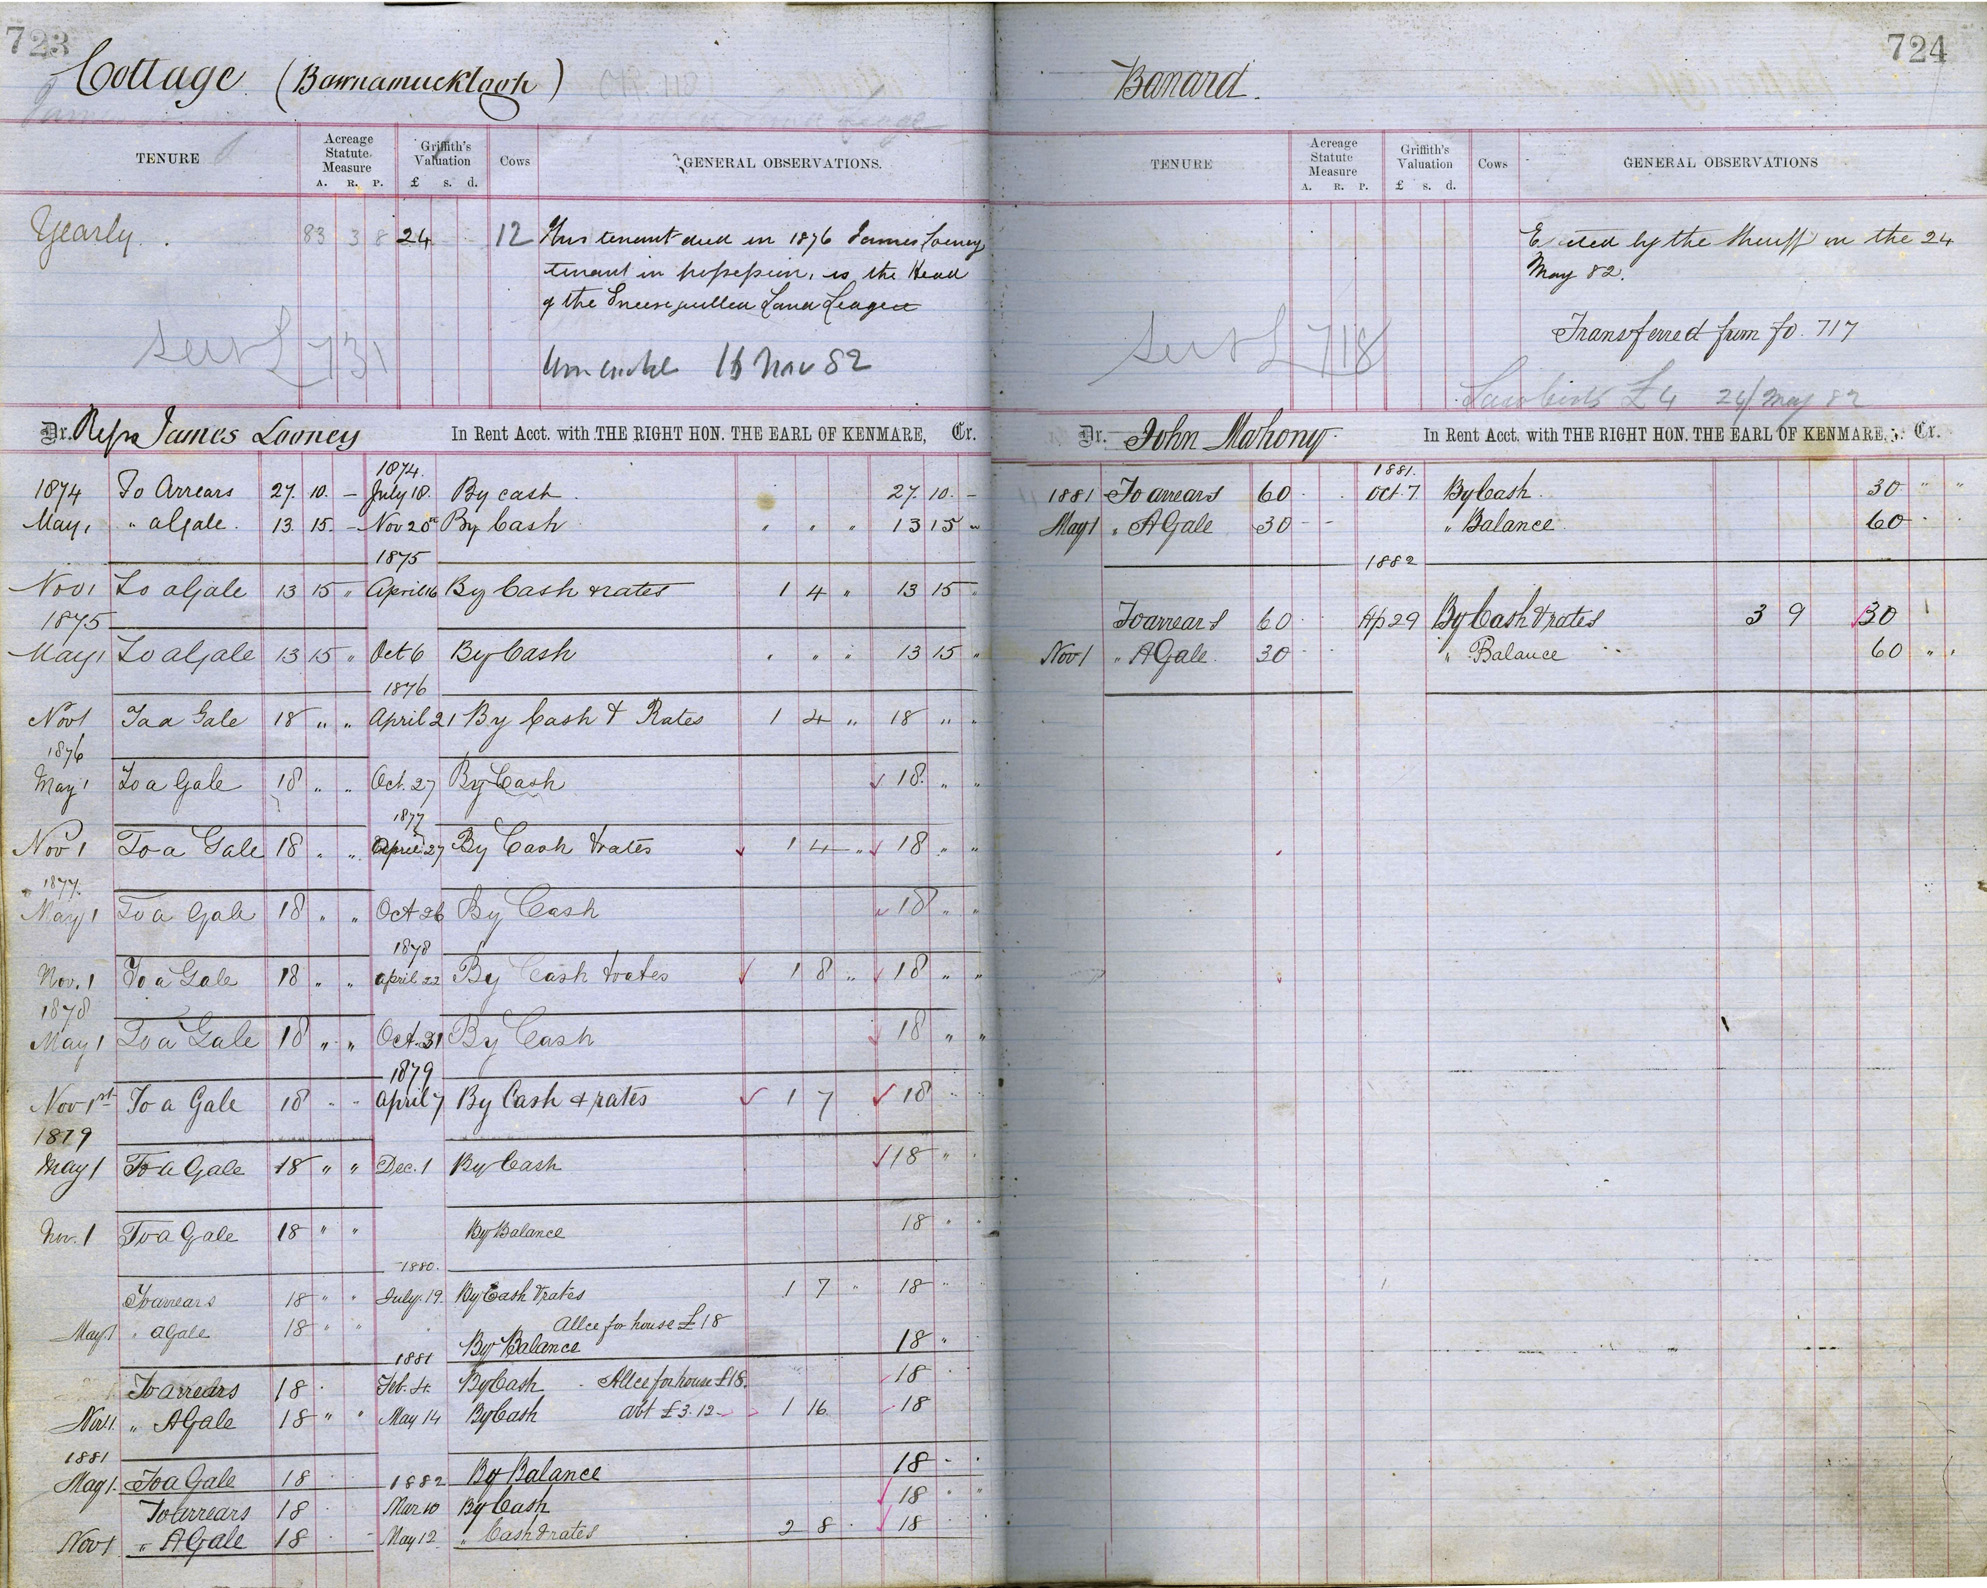 723
Cottage (Bawnamucklagh)
TENURE Acreage Statute Measure A. R. P. Griffith's Valuation £ s. d. Cows GENERAL OBSERVATIONS.
Yearly. 83 3 8 24 12 This tenant died in 1876 James Looney
tenant in possession, is the Head
of the Land League
731
16 Nov 82
Dr. Reps James Looney In Rent Acct. with THE RIGHT HON. THE EARL OF KENMARE, Cr.
1874
1874 To Arrears 27. 10. – July 18. By cash. 27. 10. –
May 1 " a Gale. 13. 15. – Nov 20th By Cash " " " 13 15 "
1875
Nov 1 To a Gale 13 15 " April 16 By Cash & rates 1 4 " 13 15 "
1875
May 1 To a Gale 13 15 " Oct 6 By Cash " " " 13 15 "
1876
Nov 1 To a Gale 18 " " April 21 By Cash & Rates 1 4 " 18 " "
1876
May 1 To a Gale 18 " " Oct. 27 By Cash 18 " "
1877
Nov 1 To a Gale 18 " " April 27 By Cash & rates 1 4 " 18 " "
1877.
May 1 To a Gale 18 " " Oct 26 By Cash 18 " "
1878
Nov. 1 To a Gale 18 " " April 22 By Cash & rates 1 8 " 18 " "
1878
May 1 To a Gale 18 " " Oct. 31 By Cash 18 " "
1879
Nov 1st To a Gale 18 " " April 7 By Cash & rates 1 7 18 " "
1879
May 1 To a Gale 18 " " Dec. 1 By Cash 18 " "
Nov. 1 To a Gale 18 " " By Balance 18 " "
1880.
To arrears 18 " " July. 19. By Cash & rates 1 7 " 18 "
Allce for house £18
May 1 " a Gale 18 " " By Balance 18 "
1881
To arrears 18 Feb. 4. By Cash Allce for house £18. 18
Nov 1. " A Gale 18 " " May 14 By Cash abt £3.12 1 16 18
1881
May 1. To a Gale 18 By Balance 18
1882
To arrears 18 Mar 10 By Cash 18 " "
Nov 1 " A Gale 18 May 12 " Cash & rates 2 8 18
724
Banard.
TENURE Acreage Statute Measure A. R. P. Griffith's Valuation £ s. d. Cows GENERAL OBSERVATIONS
by the Sheriff on the 24
May 82.
Transferred from fo. 717
718
£4 24/May 82
Dr. John Mahony. In Rent Acct. with THE RIGHT HON. THE EARL OF KENMARE, Cr.
1881.
1881 To arrears 60 Oct. 7 By Cash. 30 " "
May 1 " A Gale 30 – – " Balance 60
1882
To arrears 60 Ap 29 By Cash & rates 3 9 30
Nov 1 " A Gale. 30 " Balance 60 " "